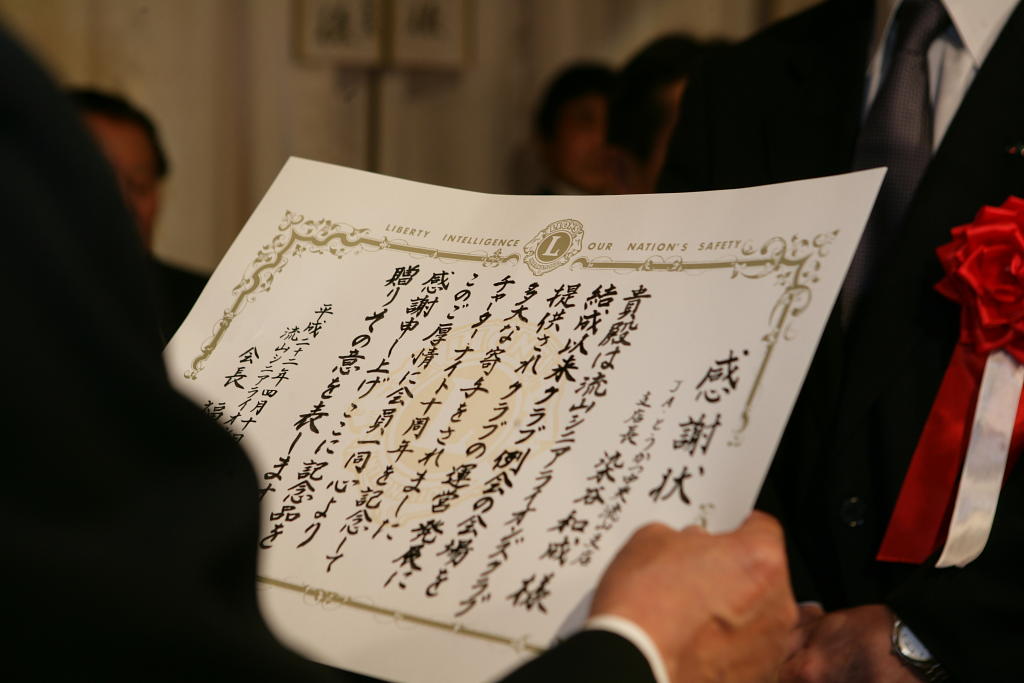 LIBERTY INTELLIGENCE
L
OUR NATION'S SAFETY
感謝状
JAとうかつ中央流山支店
支店長 染谷和成 様
貴殿は流山シニアライオンズクラブ
結成以来クラブ例会の会場を
提供されクラブの運営発展に
多大な寄与をされました
チャーターナイト十周年を記念して
このご厚情に会員一同心より
感謝申し上げここに記念品を
贈りその意を表します
平成二十二年四月十
流山シニアライオ
会長 福